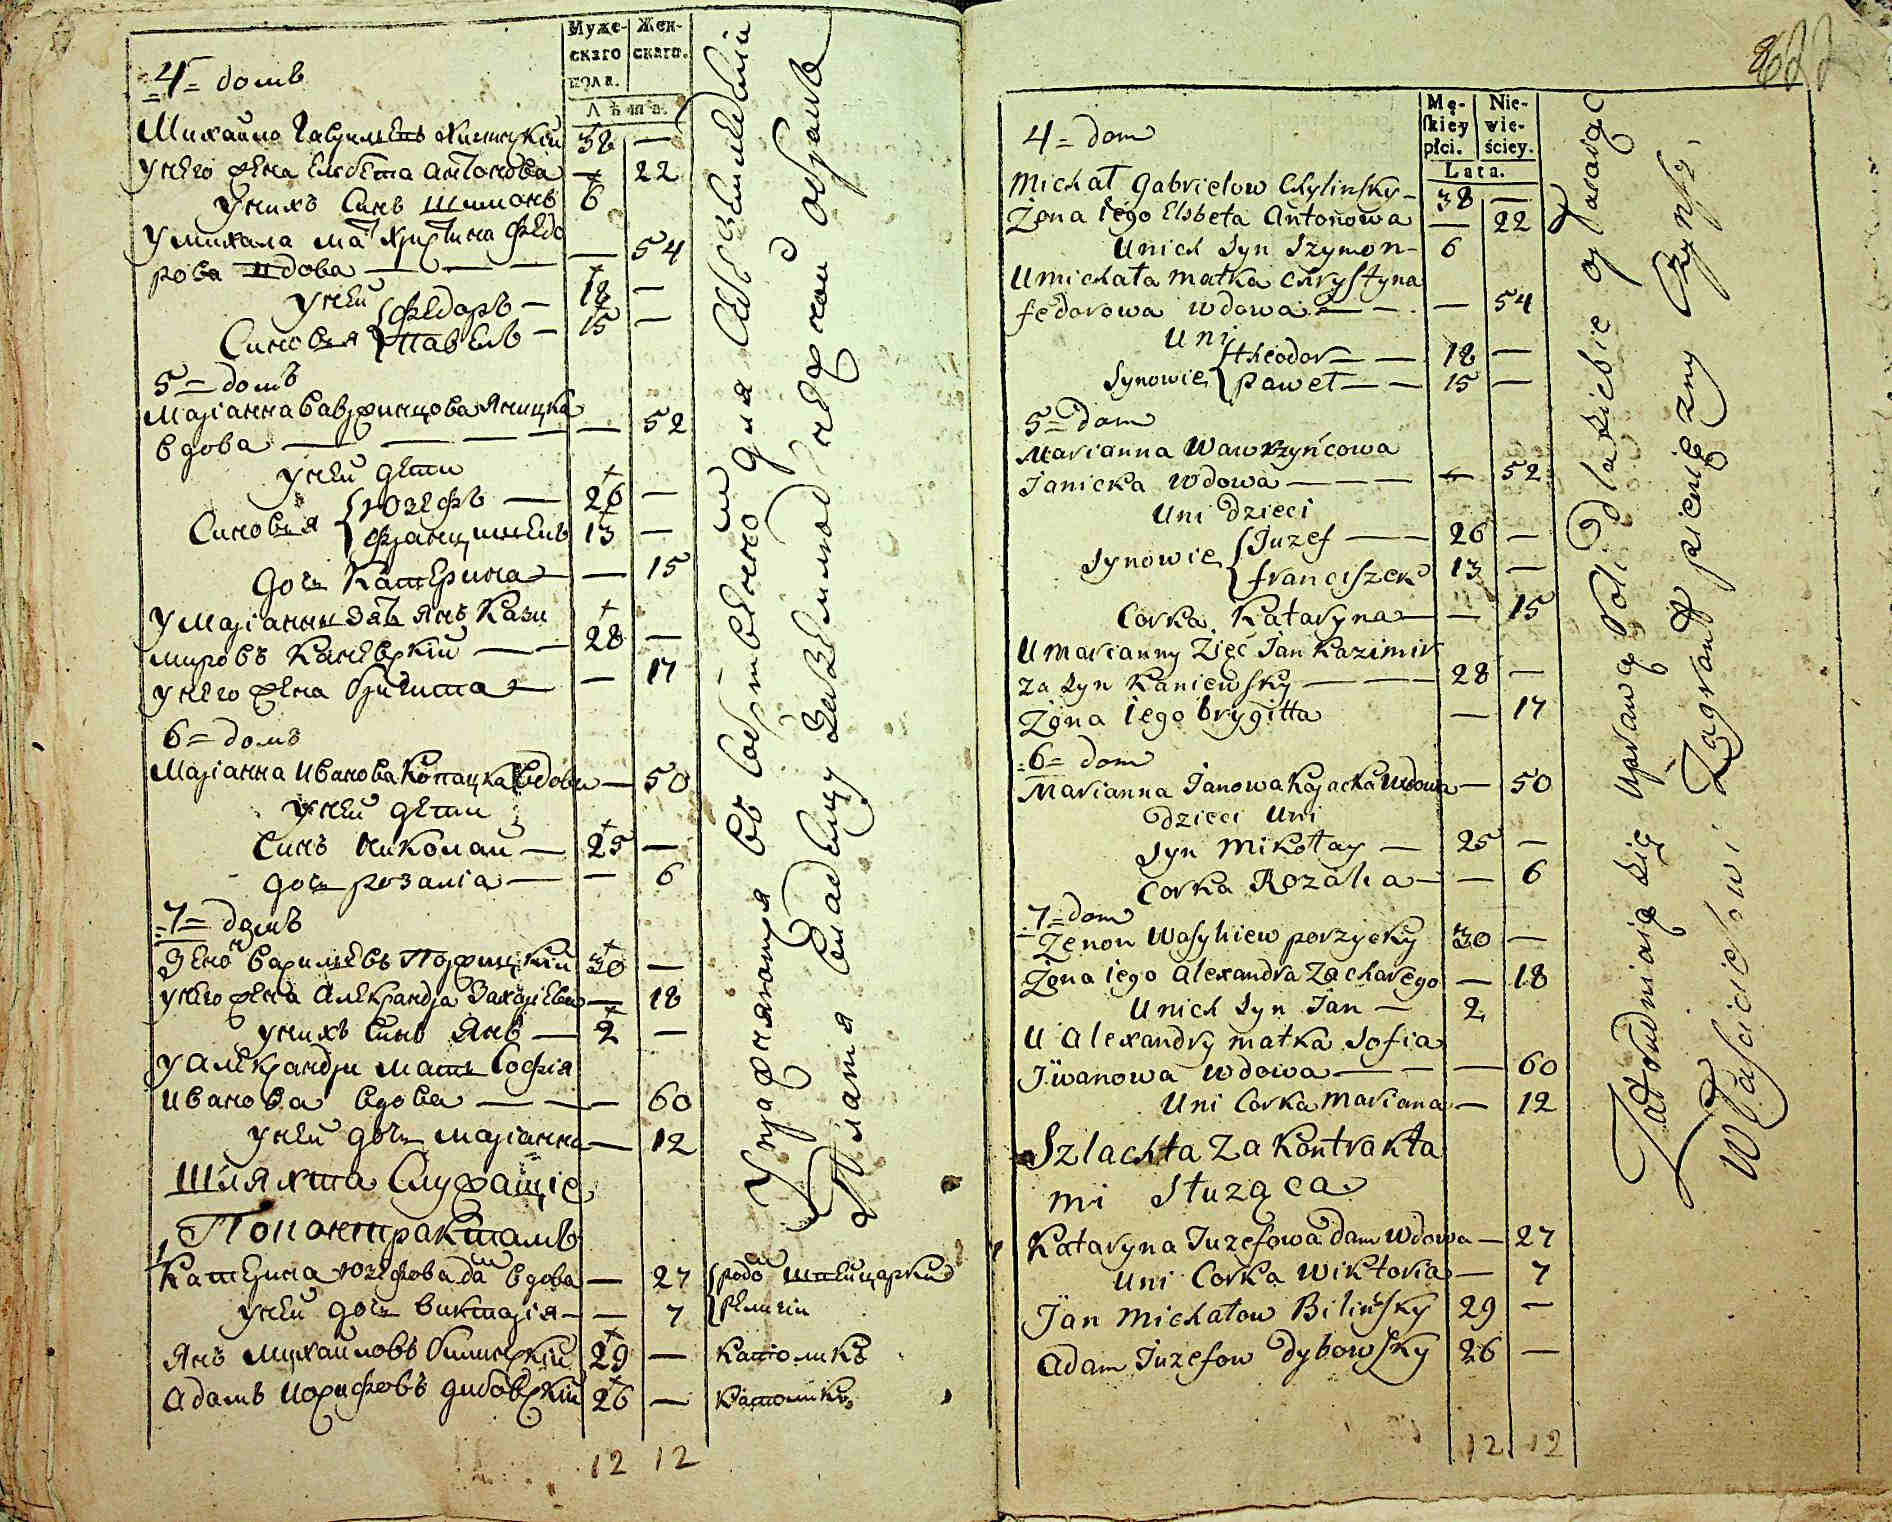 Муже-
скаго
пола.
Жен-
скаго.
Лѣта.
=4= домъ
Михаила Гаврилевъ Хилинскій 38 —
у него жена Елсбета Антонова — 22
У нихъ Синъ Шимонъ 6
У михала мат Христина Федо
рова вдова — — — — 54
У ней
Синовья { Федоръ — 18 —
Павелъ — 15 —
5= домъ
Маріанна Вавржинцова Яницка
вдова — — — — — 52
у ней дети
Синовья { Юзефъ — 26 —
Францишекъ 13 —
дочь Катерина — — 15
У Маріанни зять Янъ Кази
мировъ Каневскій — — 28 —
у него жена Бригита — — 17
6= домъ
Маріанна Иванова Копацка вдова — 50
у ней дети
Синъ Николай — 25 —
дочь Розалія — — 6
=7= домъ
Зенон Василевъ Поржицкій 30 —
у него жена Александра Захаріева — 18
у нихъ Синъ Янъ — 2 —
У Александри мать Софія
Иванова вдова — — — 60
у ней дочь Маріанна — 12
Шляхта Служащіе
По контрактамъ
Катерина Юзефова дам вдова — 27 { родом Швейцарки
у ней дочь Виктарія — — 7 { Религіи
Янъ Михайловъ Билинскій 29 — католикъ
Адамъ Иозифовъ Дибовскій 26 — католикъ
12 12
Упражняются въ собственной для себя
Платя владельцу Земли
622
Mę-
skiey
płci.
Nie-
wie-
ściey.
Lata.
4= dom
Michał Gabrielow Chylinsky — 38 —
Żona iego Elsbeta Antonowa — 22
U nich Syn Szymon — 6
U michała matka Chrystyna
fedorowa wdowa — — — 54
U ni
Synowie { Theodor — — 18 —
Paweł — — 15 —
5= dom
Marianna Wawrzyńcowa
Janicka Wdowa — — — — 52
U ni dzieci
Synowie { Juzef — — 26 —
franciszek 13 —
Corka Kataryna — — 15
U marianny Zięć Jan Kazimir
za Syn Kaniewsky — — — 28 —
Żona iego brygitta — 17
=6= dom
Marianna Janowa Kopacka Wdowa — 50
dzieci U ni
Syn Mikołay — 25 —
Corka Rozalia — — 6
=7= dom
Zenon Wasyliew porzycky 30 —
Żona iego Alexandra Zacharego — 18
U nich Syn Jan — 2
U Alexandry matka Sofia
Jwanowa wdowa — — — 60
U ni Corka Mariana — 12
Szlachta Za Kontrakta
mi służąca
Kataryna Juzefowa dam wdowa — 27
U ni Corka Wiktoria — 7
Jan Michałow Bilińsky 29 —
Adam Juzefow Dybowsky 26 —
12 12
Zatrudniaią się uprawą Roli dla siebie opłacaiąc
Właścicielowi Zagrunt pieniężny Czynsz.